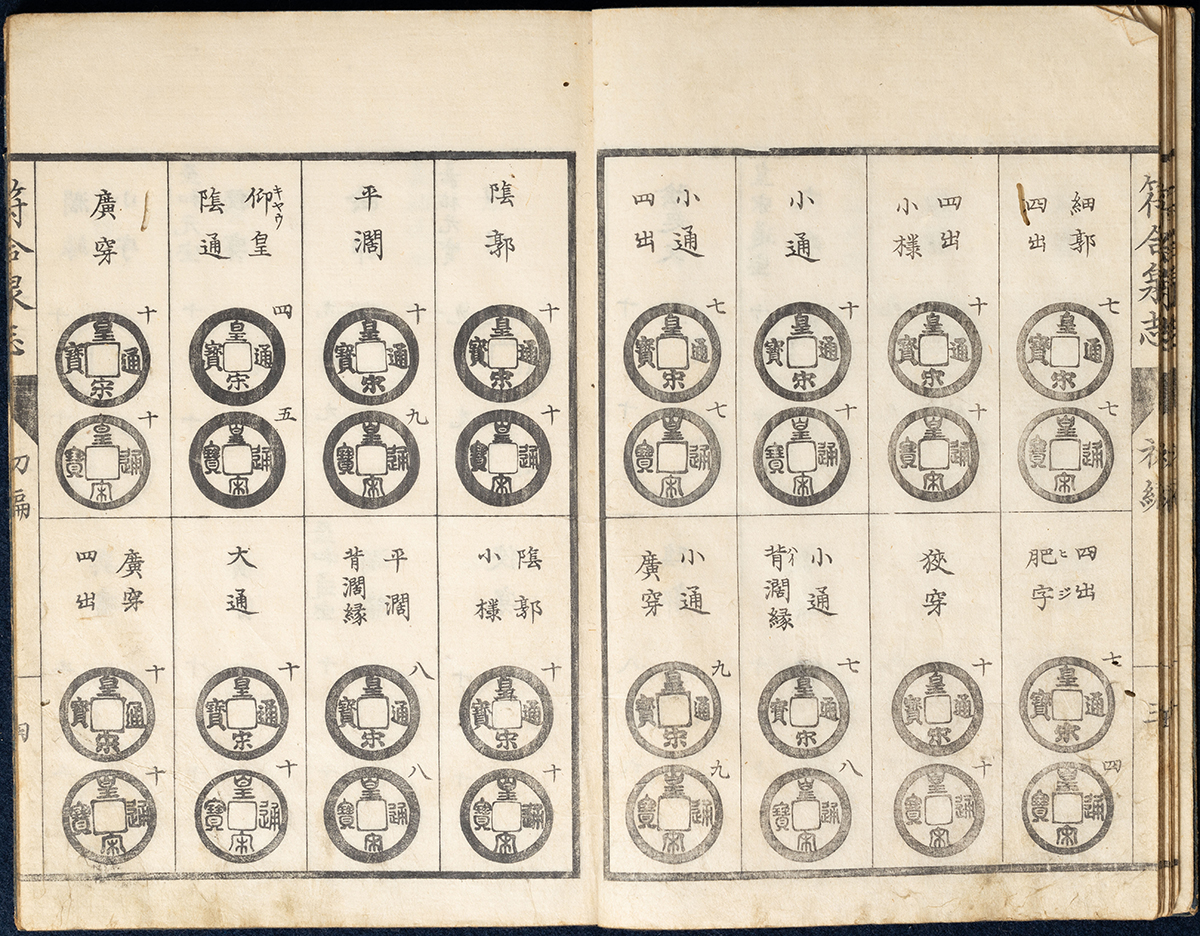 符合泉志
初編
三
細郭
四出
七
皇宋通寳
七
皇宋通寳
四出
小樣
十
皇宋通寳
十
皇宋通寳
小通
十
皇宋通寳
十
皇宋通寳
小通
四出
七
皇宋通寳
七
皇宋通寳
四出
肥字
ヒジ
七
皇宋通寳
四
皇宋通寳
狹穿
十
皇宋通寳
十
皇宋通寳
小通
背濶縁
ハイ
七
皇宋通寳
八
皇宋通寳
小通
廣穿
九
皇宋通寳
九
皇宋通寳
陰郭
十
皇宋通寳
十
皇宋通寳
平濶
十
皇宋通寳
九
皇宋通寳
仰皇
キヤウ
陰通
四
皇宋通寳
五
皇宋通寳
廣穿
十
皇宋通寳
十
皇宋通寳
陰郭
小樣
十
皇宋通寳
十
皇宋通寳
平濶
背濶縁
八
皇宋通寳
八
皇宋通寳
大通
十
皇宋通寳
十
皇宋通寳
廣穿
四出
十
皇宋通寳
十
皇宋通寳
符合泉志
初編
四